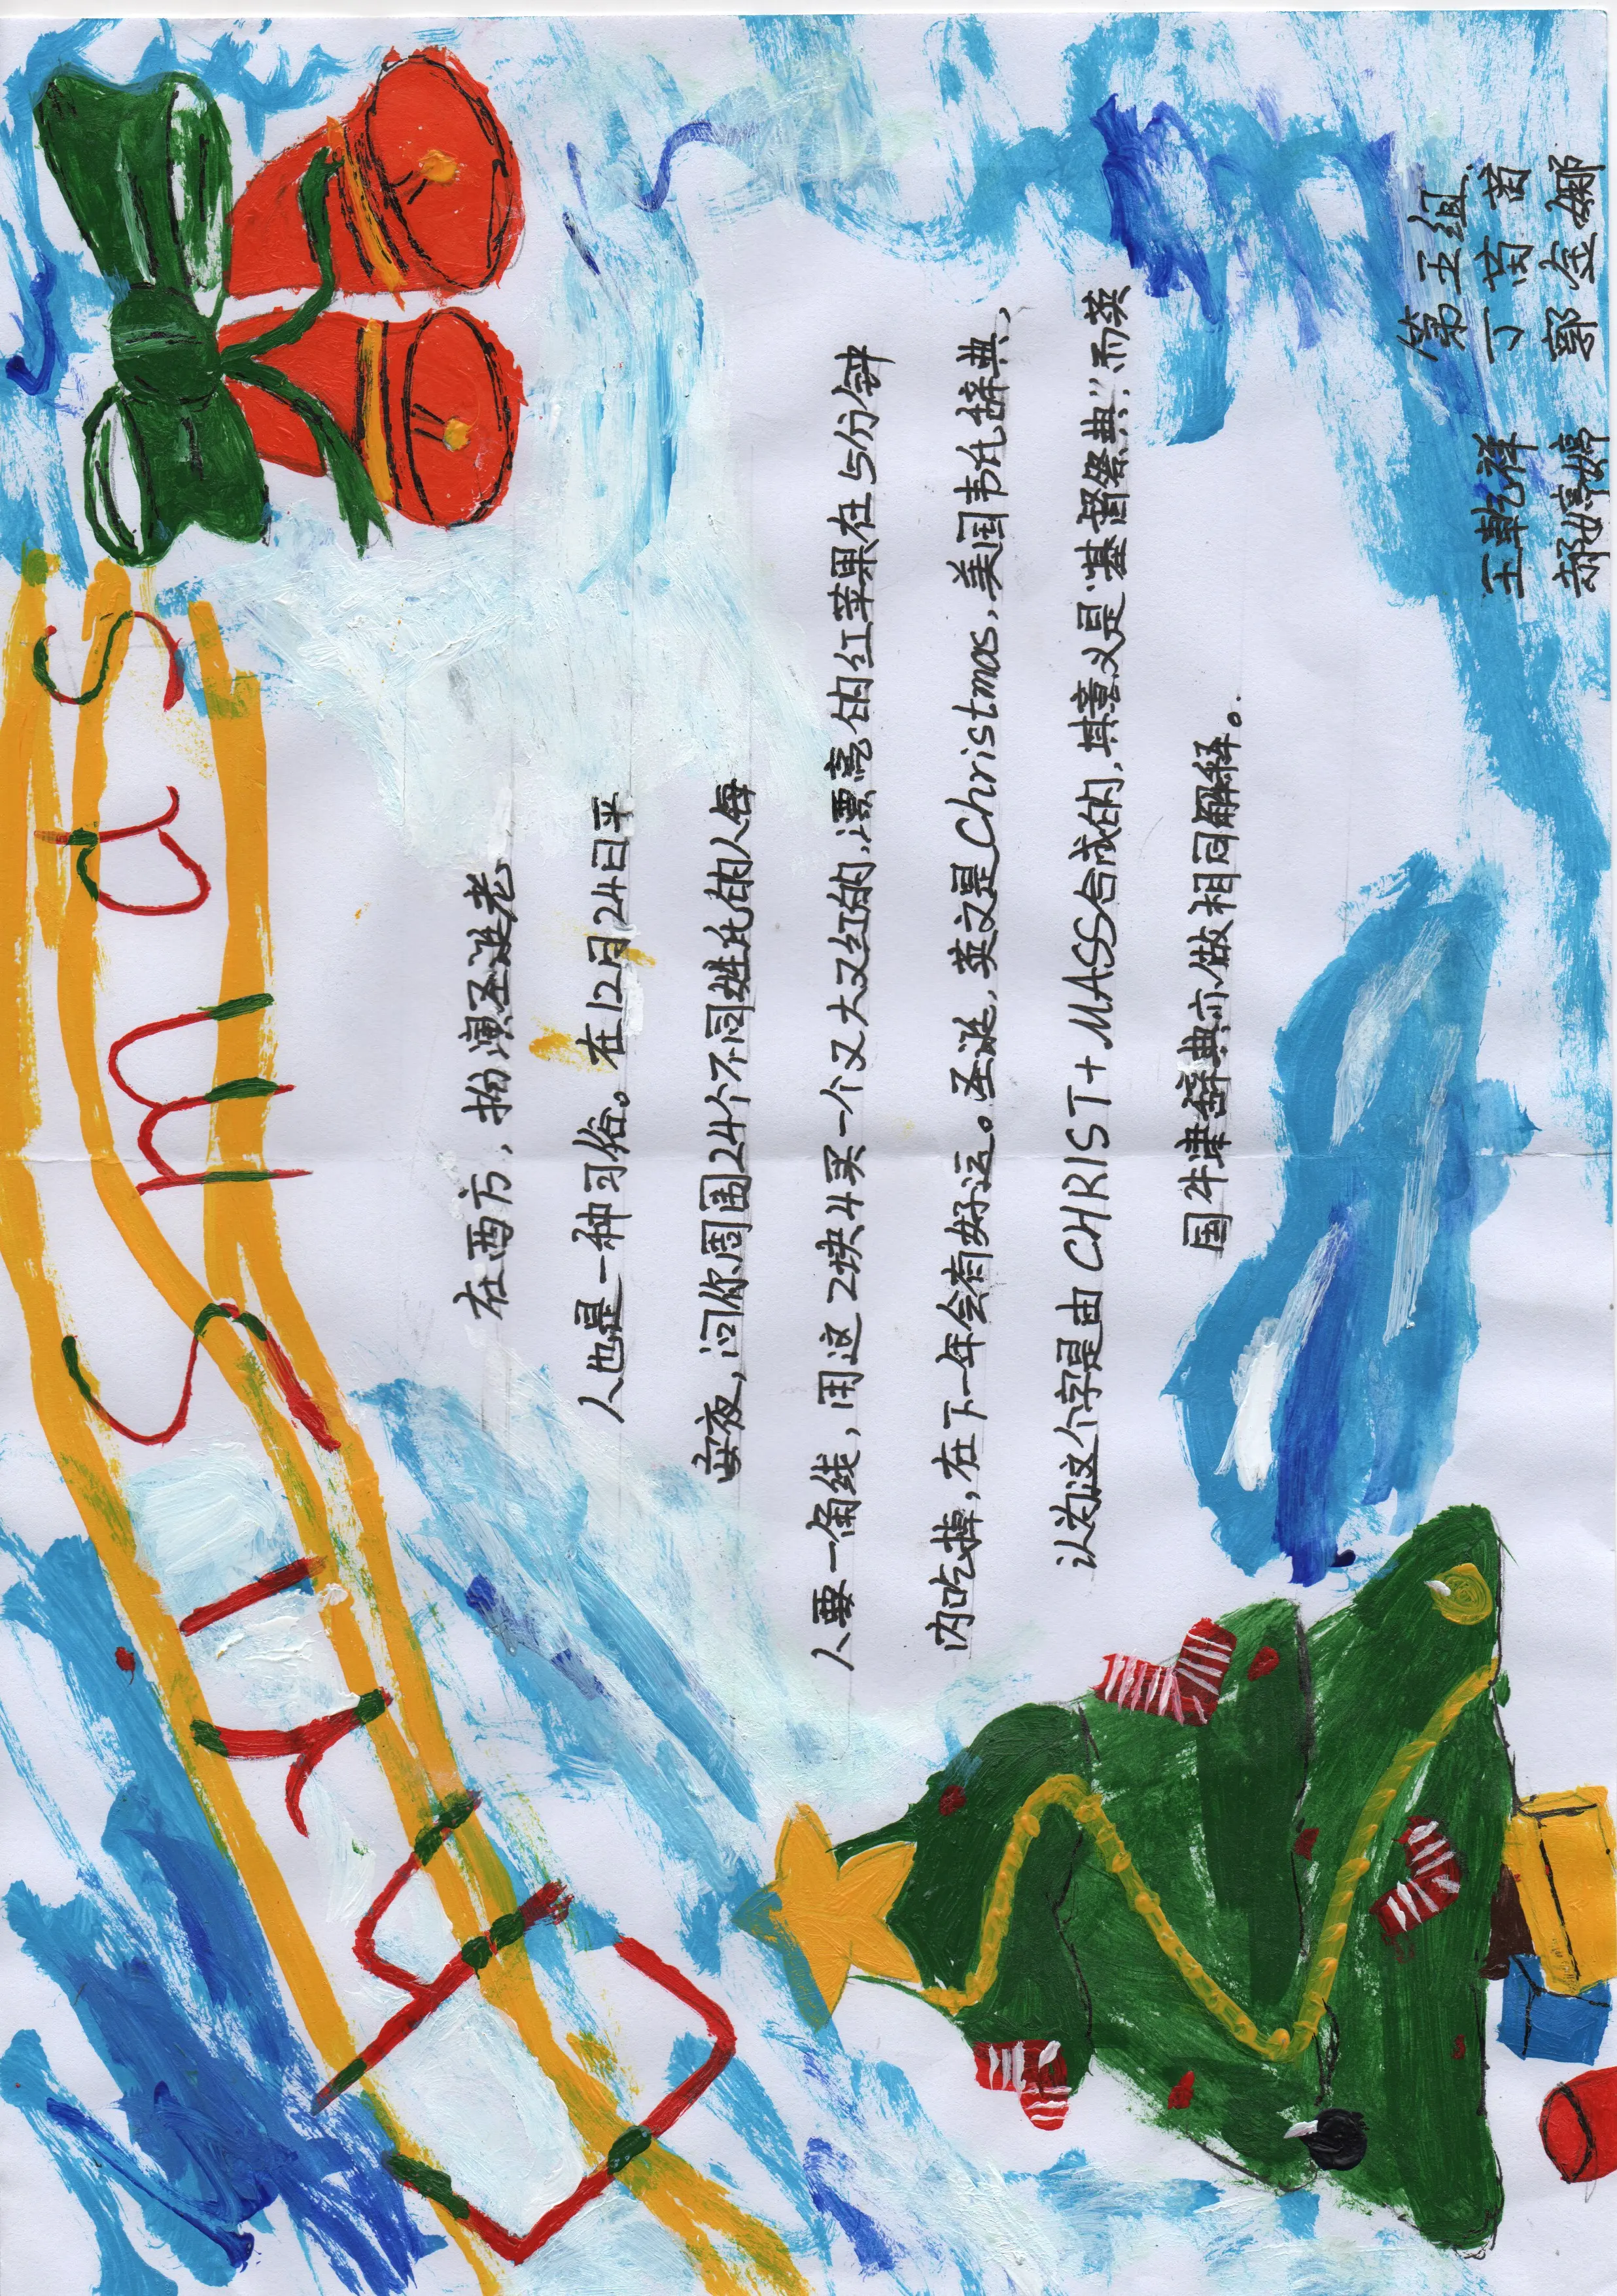 Chrismas
在西方，扮演圣诞老
人也是一种习俗。在12月24日平
安夜，问你周围24个不同姓氏的人每
人要一角线，用这2块4买一个又大又红的,漂亮的红苹果在5分钟
内吃掉，在下一年会有好运。圣诞，英文是Christmas，美国韦氏辞典，
认为这个字是由CHRIST+MASS合成的,其意义是“基督祭典”而英
国牛津辞典亦做相同解释。
第五组
王乾祥 丁
郝婷婷 郭金娜